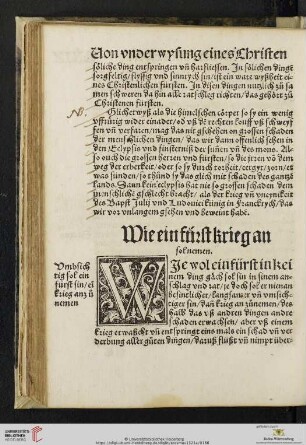 Von vnderwysung eines Christen
söliche ding entspringen vñ harfliessen. In sölichen dingē
sorgfeltig/ flyssig vnd sinnrych sin/ ist ein ware wyßheit ei-
nes Christenlichen fürsten. In disen dingen nutzlich zů sa-
men schweren da hin alle ratschleg richten/ das gehört zů
Christenen fürsten.
Glicherwyß als die himelschen cörpel so sy ein wenig
vffrürig wider einader/ od vß
fen vñ verfaren/ mag das nit gschehen on grossen schaden
der menschlichen dingen/ das wir dann offentlich sehen in
den Eclypsis vnd finsterniß der sunnen vñ des mono. Al-
so ouch die grossen herren vnd fürsten/ so die irren vō dem
weg der erberkeit oder so sy durch torheit/ eergyt/ zorn/ et
was sünden/ so thünd sy das glich mit schaden des gantzē
lands. Dann kein eclypsis hat nie so grossen schaden dem
menschlichem gschlecht bracht/ als der krieg vñ vneynikeit
des Bapst Julij vnd Ludouici künig in Franckrych/ das
wir vor vnlangem gsehen vnd beweint habē.
Wie ein fürst krieg an
sol nemen.
Vmbsich-
tig sol ein
fürst sin/ ei
krieg anzů
nemen
WIe wol ein fürst in kei
nem ding gäch sol sin in sinem an-
schlag vnd rat/ ie doch sol er nienan
besintlicher/ langsamer vñ vmsich-
tiger sin/ dañ krieg an zůnemen/ des
halb das vß andren dingen andre
schaden erwachsen/ aber vß einem
krieg erwachßt vñ entspring eins mals ein schad vñ ver-
derbung aller gůten dingen/ daruß flußt vñ nimpt über-
UNIVERSITÄTS-
BIBLIOTHEK
HEIDELBERG
© Universitätsbibliothek Heidelberg